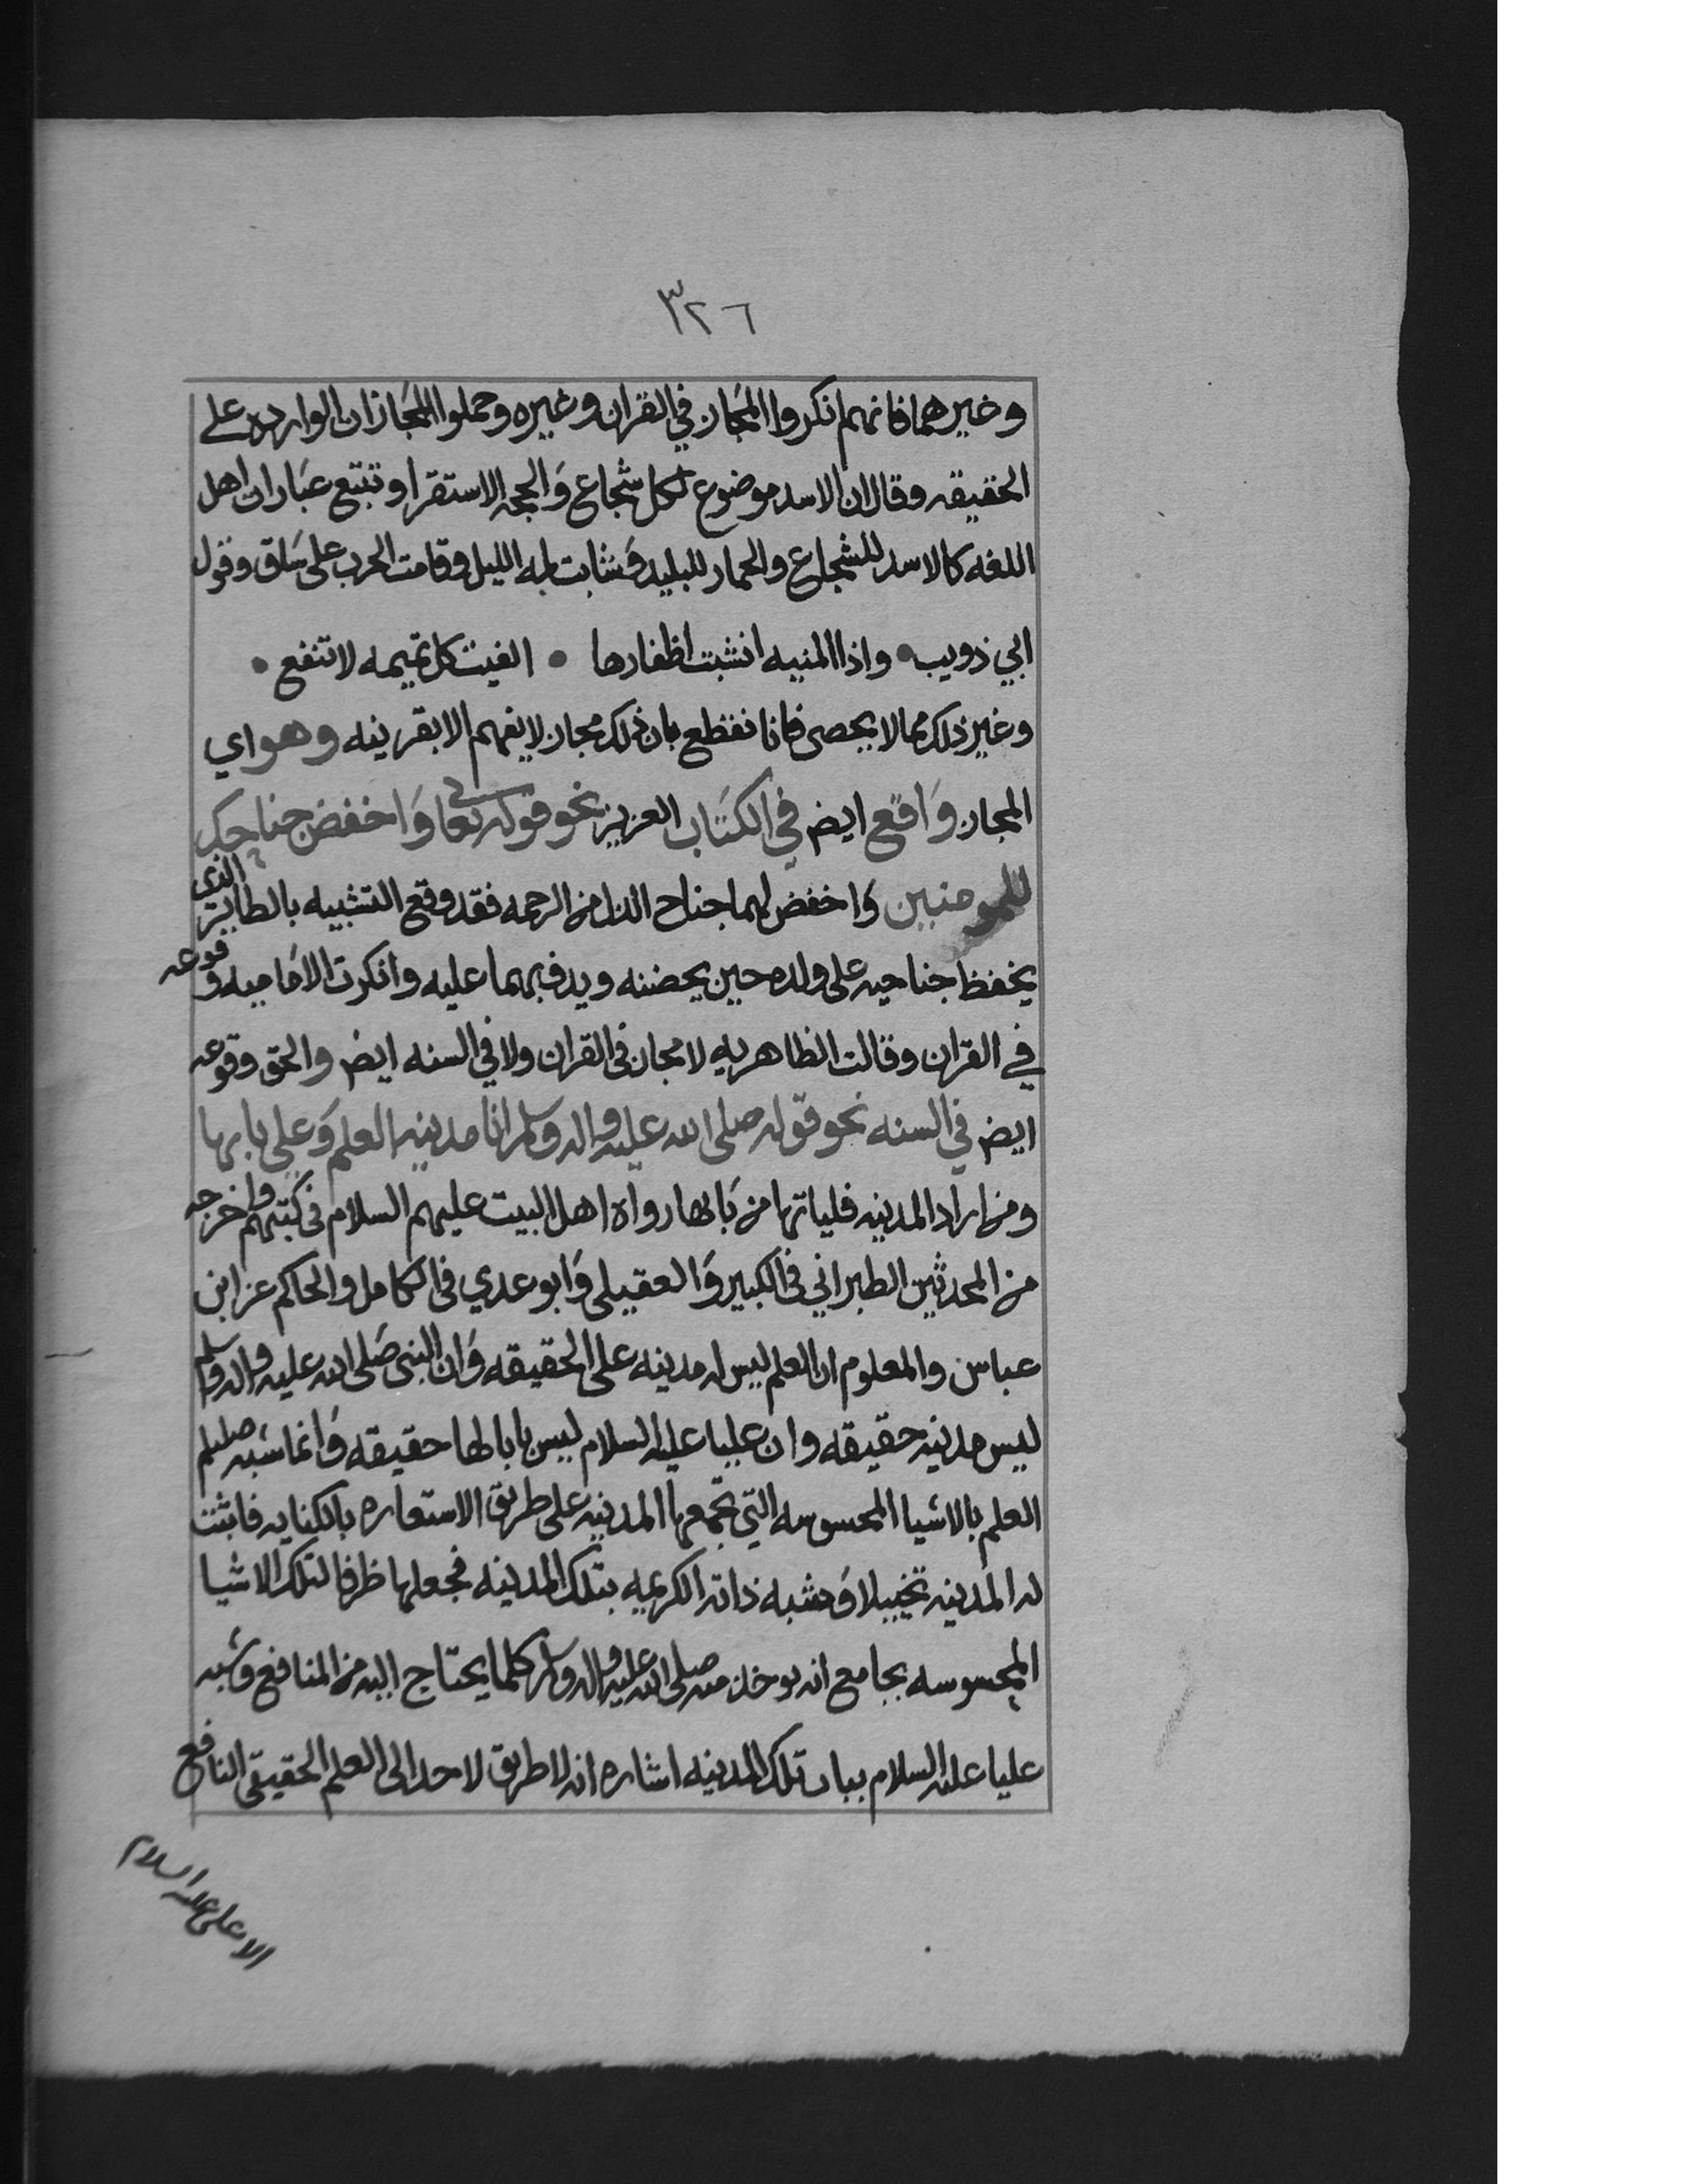 ٣٢٦
وغيرهما فانهم انكروا المجاز في القران وغيره وحملوا المجازات الوارده على
الحقيقه وقال ان الاسد موضوع لكل شجاع والحجه الاستقرا وتتبع عبارات اهل
اللغه كالاسد للشجاع والحمار للبليد وشابت لمه الليل وقامت الحرب على ساق وقول
ابي ذويب • واذا المنيه انشبت اظفارها • الفيت كل تميمه لا تنفع •
وغير ذلك مما لا يحصى فانا نقطع بان ذلك مجاز لا يفهم الا بقرينه وهو اي
المجاز واقع ايض في الكتاب العزيز نحو قوله تعالى واخفض جناحك
للمومنين واخفض لهما جناح الذل من الرحمه فقد وقع التشبيه بالطاير الذي
يخفظ جناحيه على ولده حين يحضنه ويدف بهما عليه وانكرت الاماميه وقوعه
في القران وقالت الظاهريه لا مجاز في القران ولا في السنه ايض والحق وقوعه
ايض في السنه نحو قوله صلى الله عليه واله وسلم انا مدينه العلم وعلي بابها
ومن اراد المدينه فلياتها من بابها رواه اهل البيت عليهم السلام في كتبهم واخرجه
من المحدثين الطبراني في الكبير والعقيلي وابو عدي في الكامل والحاكم عن ابن
عباس والمعلوم ان العلم ليس له مدينه على الحقيقه وان النبي صلى الله عليه واله وسلم
ليس مدينه حقيقه وان عليا عليه السلام ليس بابا لها حقيقه وانما شبه صلعم
العلم بالاشيا المحسوسه التي تجمعها المدينه على طريق الاستعاره بالكنايه فاثبت
له المدينه تخييلا وشبه ذاته الكريمه بتلك المدينه فجعلها ظرفا لتلك الاشيا
المحسوسه بجامع انه يوخذ منه صلى الله عليه واله وسلم كلما يحتاج اليه من المنافع وشبه
عليا عليه السلام بباب تلك المدينه اشاره انه لا طريق لاحد الى العلم الحقيقي النافع
الا علي عليه السلام